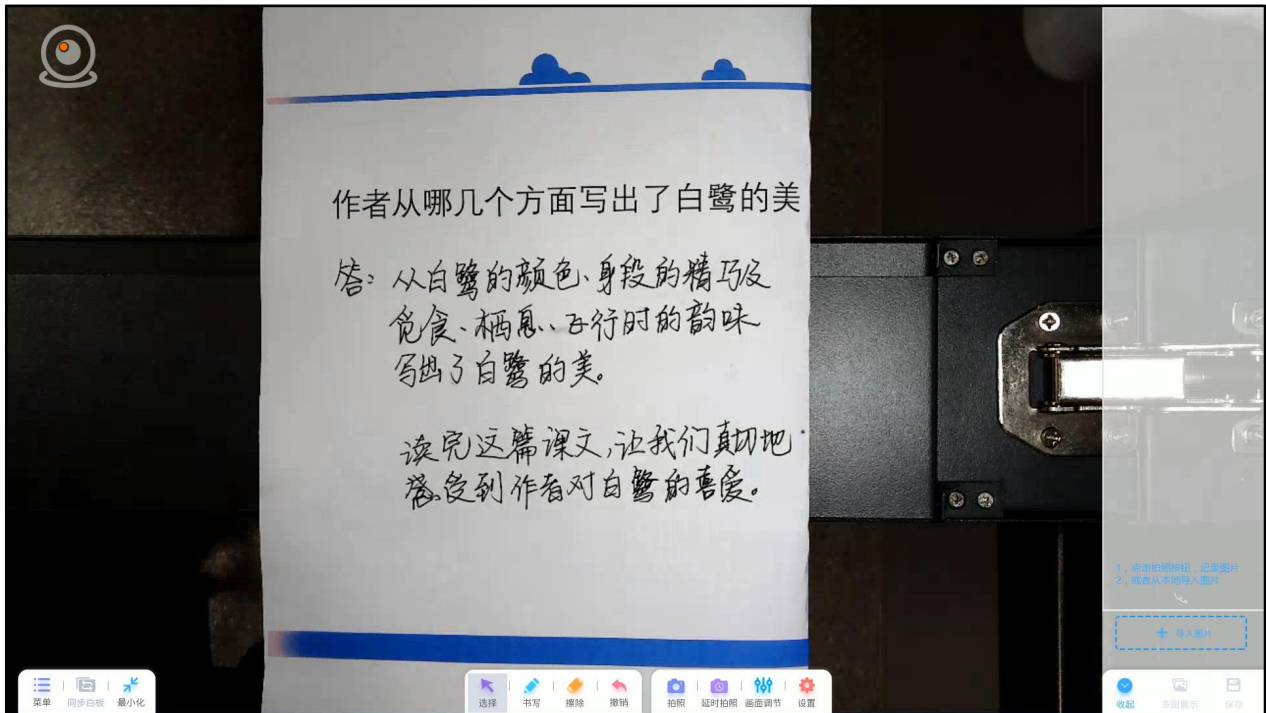 作者从哪几个方面写出了白鹭的美
答：从白鹭的颜色、身段的精巧及
觅食、栖息、飞行时的韵味
写出了白鹭的美。
读完这篇课文,让我们真切地
感受到作者对白鹭的喜爱。
1，点击拍照按钮，记录图片
2，或者从本地导入图片
导入图片
菜单 同步白板 最小化
选择 书写 擦除 撤销
拍照 延时拍照 画面调节 设置
收起 多图展示 保存